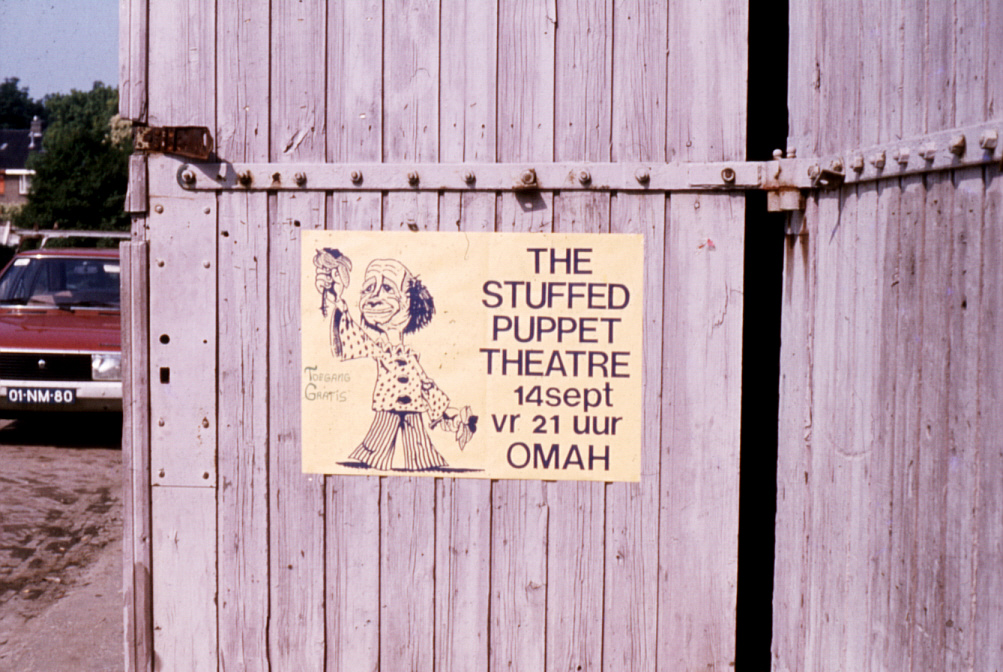 THE
STUFFED
PUPPET
THEATRE
14sept
vr 21 uur
OMAH
TOEGANG
GRATIS
01-NM-80